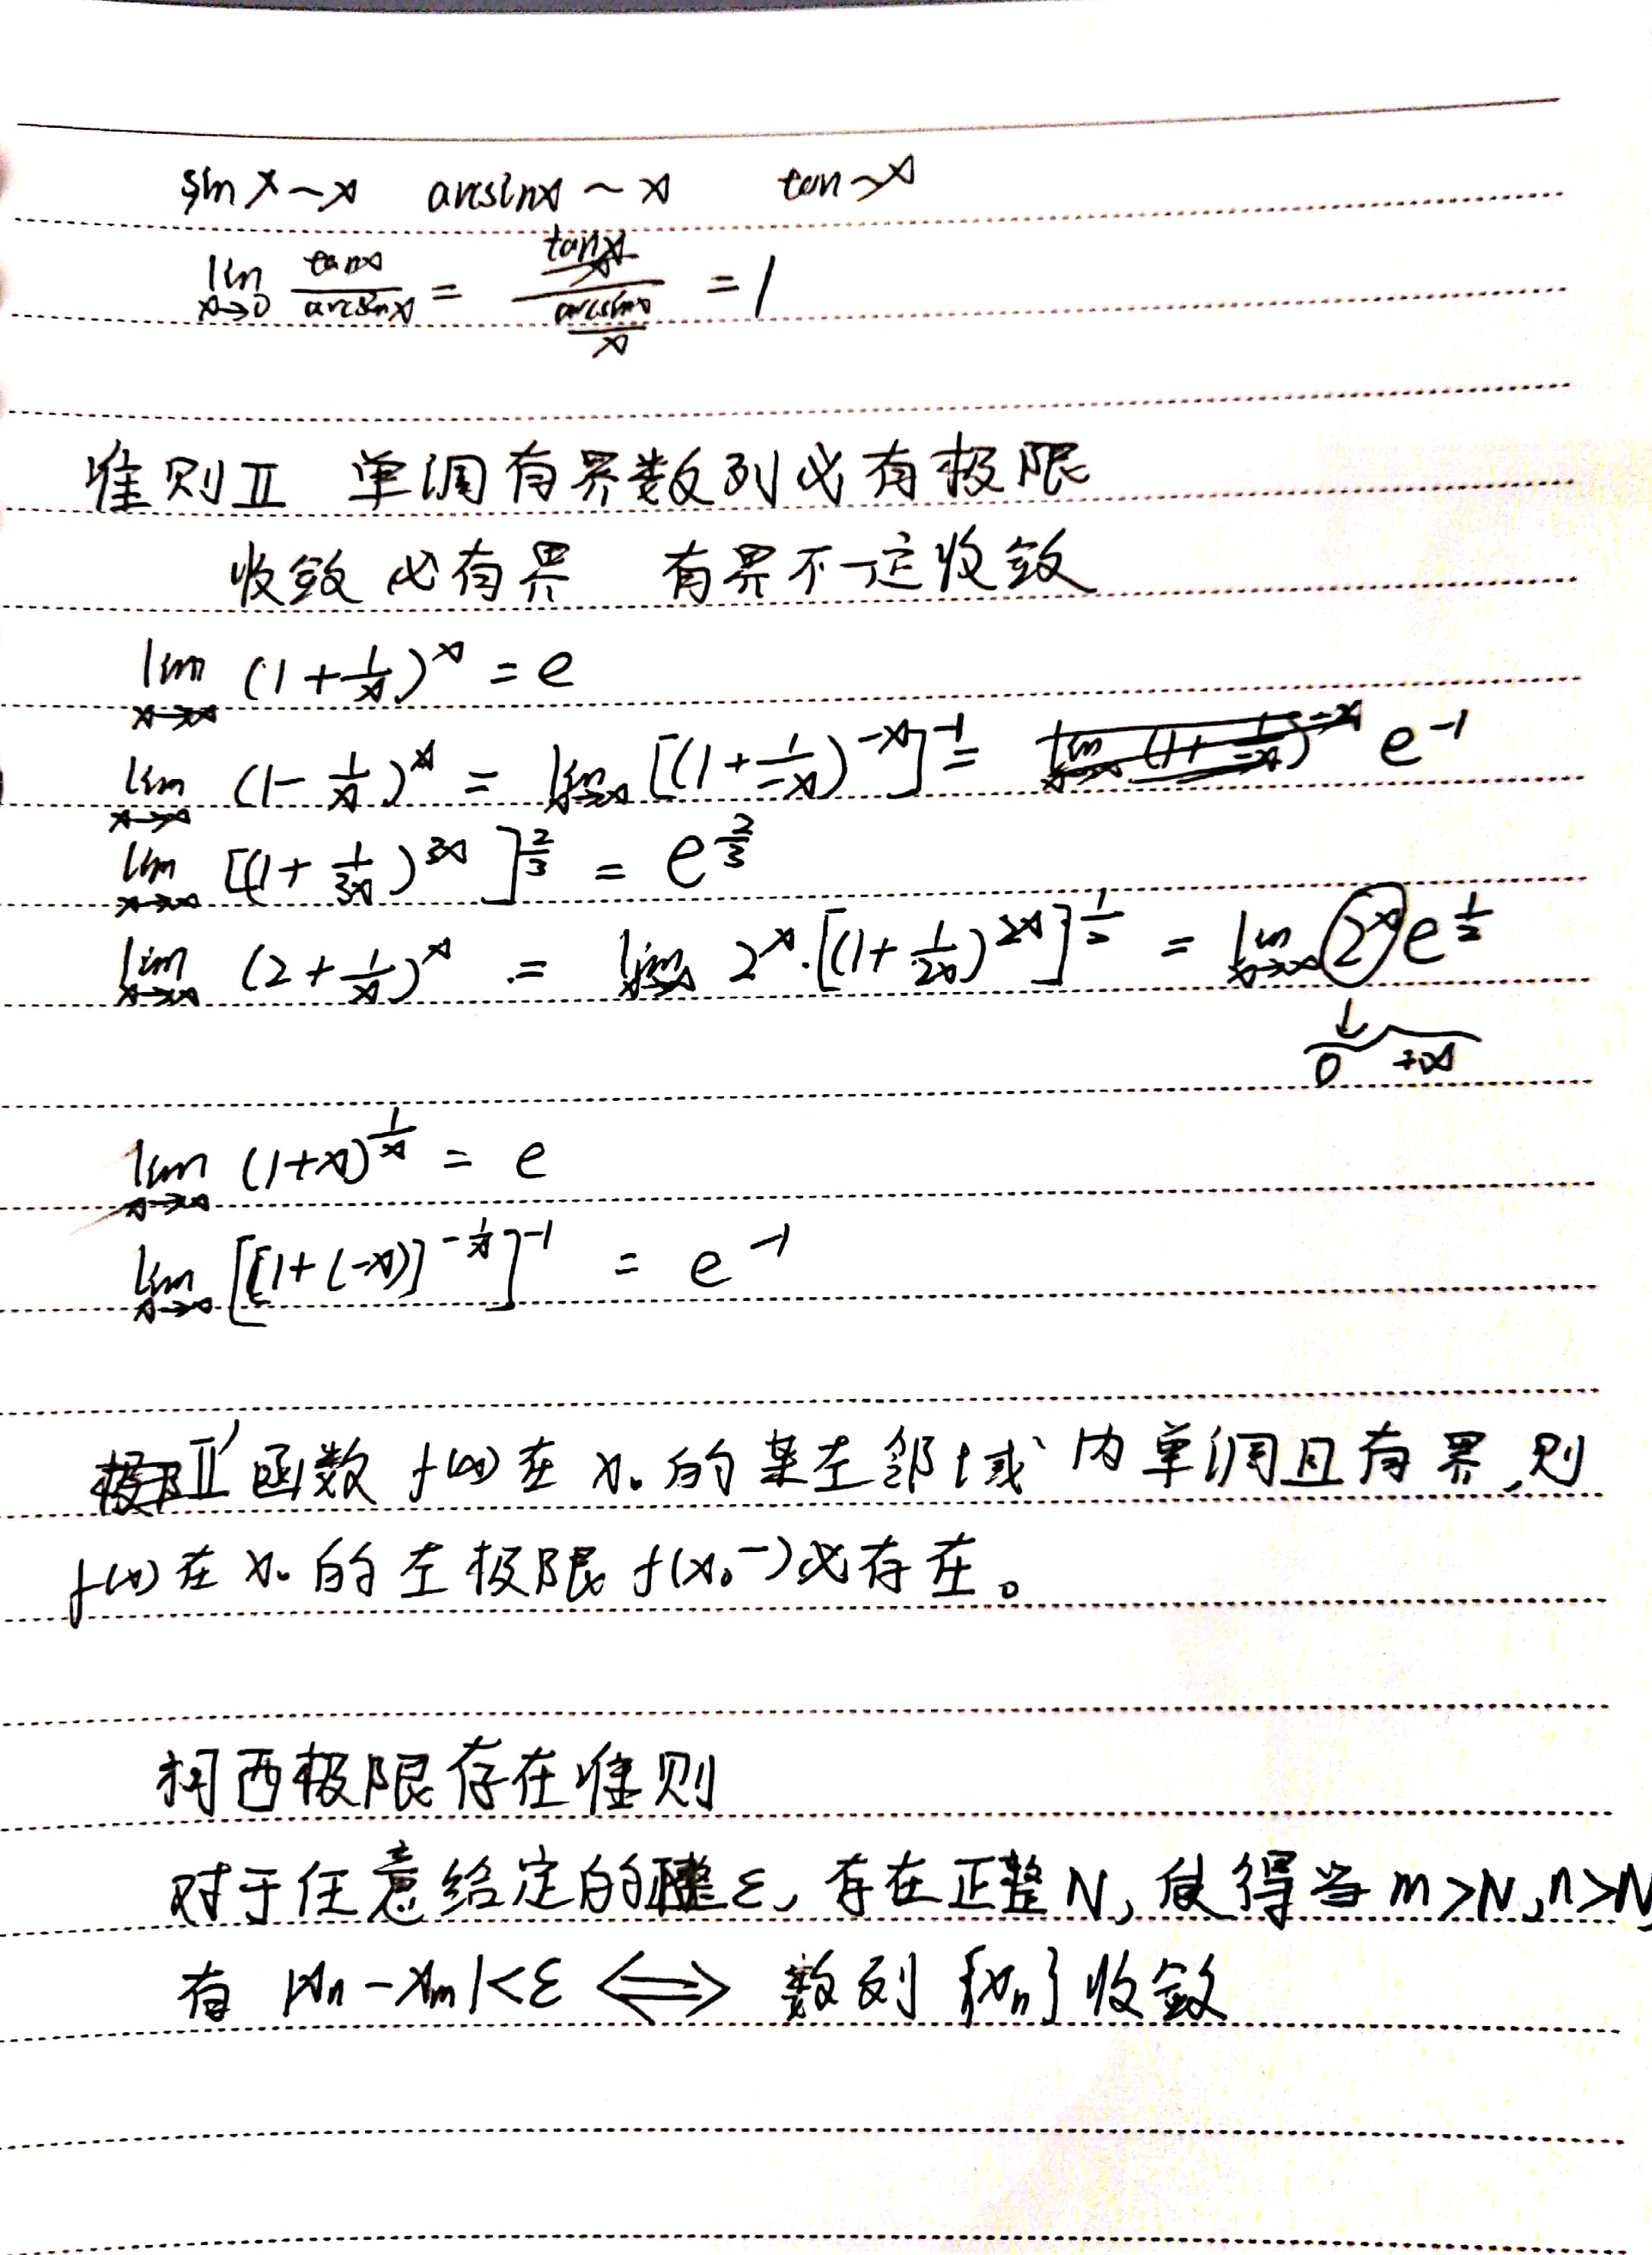 sin x ~ x arcsin x ~ x tan ~ x
lim x→0 tanx/arcsinx = (tanx/x)/(arcsinx/x) = 1
准则Ⅱ 单调有界数列必有极限
收敛必有界 有界不一定收敛
lim x→∞ (1+1/x)^x = e
lim x→∞ (1-1/x)^x = lim x→∞ [(1+1/-x)^-x]^-1 = e^-1
lim x→∞ [(1+1/3x)^3x]^2/3 = e^2/3
lim x→∞ (2+1/x)^x = lim x→∞ 2^x·[(1+1/2x)^2x]^1/2 = lim x→∞ 2^x e^1/2
↓
0 +∞
lim x→∞ (1+x)^1/x = e
lim x→∞ [[1+(-x)]^-1/x]^-1 = e^-1
Ⅱ' 函数 f(x) 在 x₀ 的某左邻域内单调且有界,则
f(x) 在 x₀ 的左极限 f(x₀⁻) 必存在。
柯西极限存在准则
对于任意给定的 ε, 存在正整 N, 使得当 m>N, n>N
有 |xn - xm| < ε ⟺ 数列 {xn} 收敛